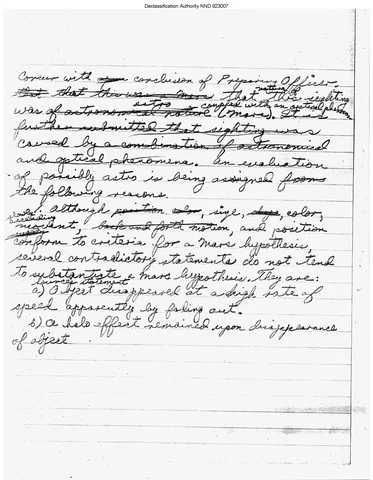 Declassification Authority NND 923007
Concur with conclusion of Preparing Officer
that the sighting
was of astro coupled with an optical phenom
(Mars). It is
further submitted that sighting was
caused by a combination of astronomical
and optical phenomena. An evaluation
of possibly astro is being assigned from
the following reasons.
Although position color, size, shape, color,
ascending
movement, back and forth motion, and position
conform to criteria for a Mars hypothesis,
several contradictory statements do not tend
to substantiate a Mars hypothesis. They are:
a) Object disappeared at a high rate of
speed apparently by fading out.
b) A halo effect remained upon disappearance
of object